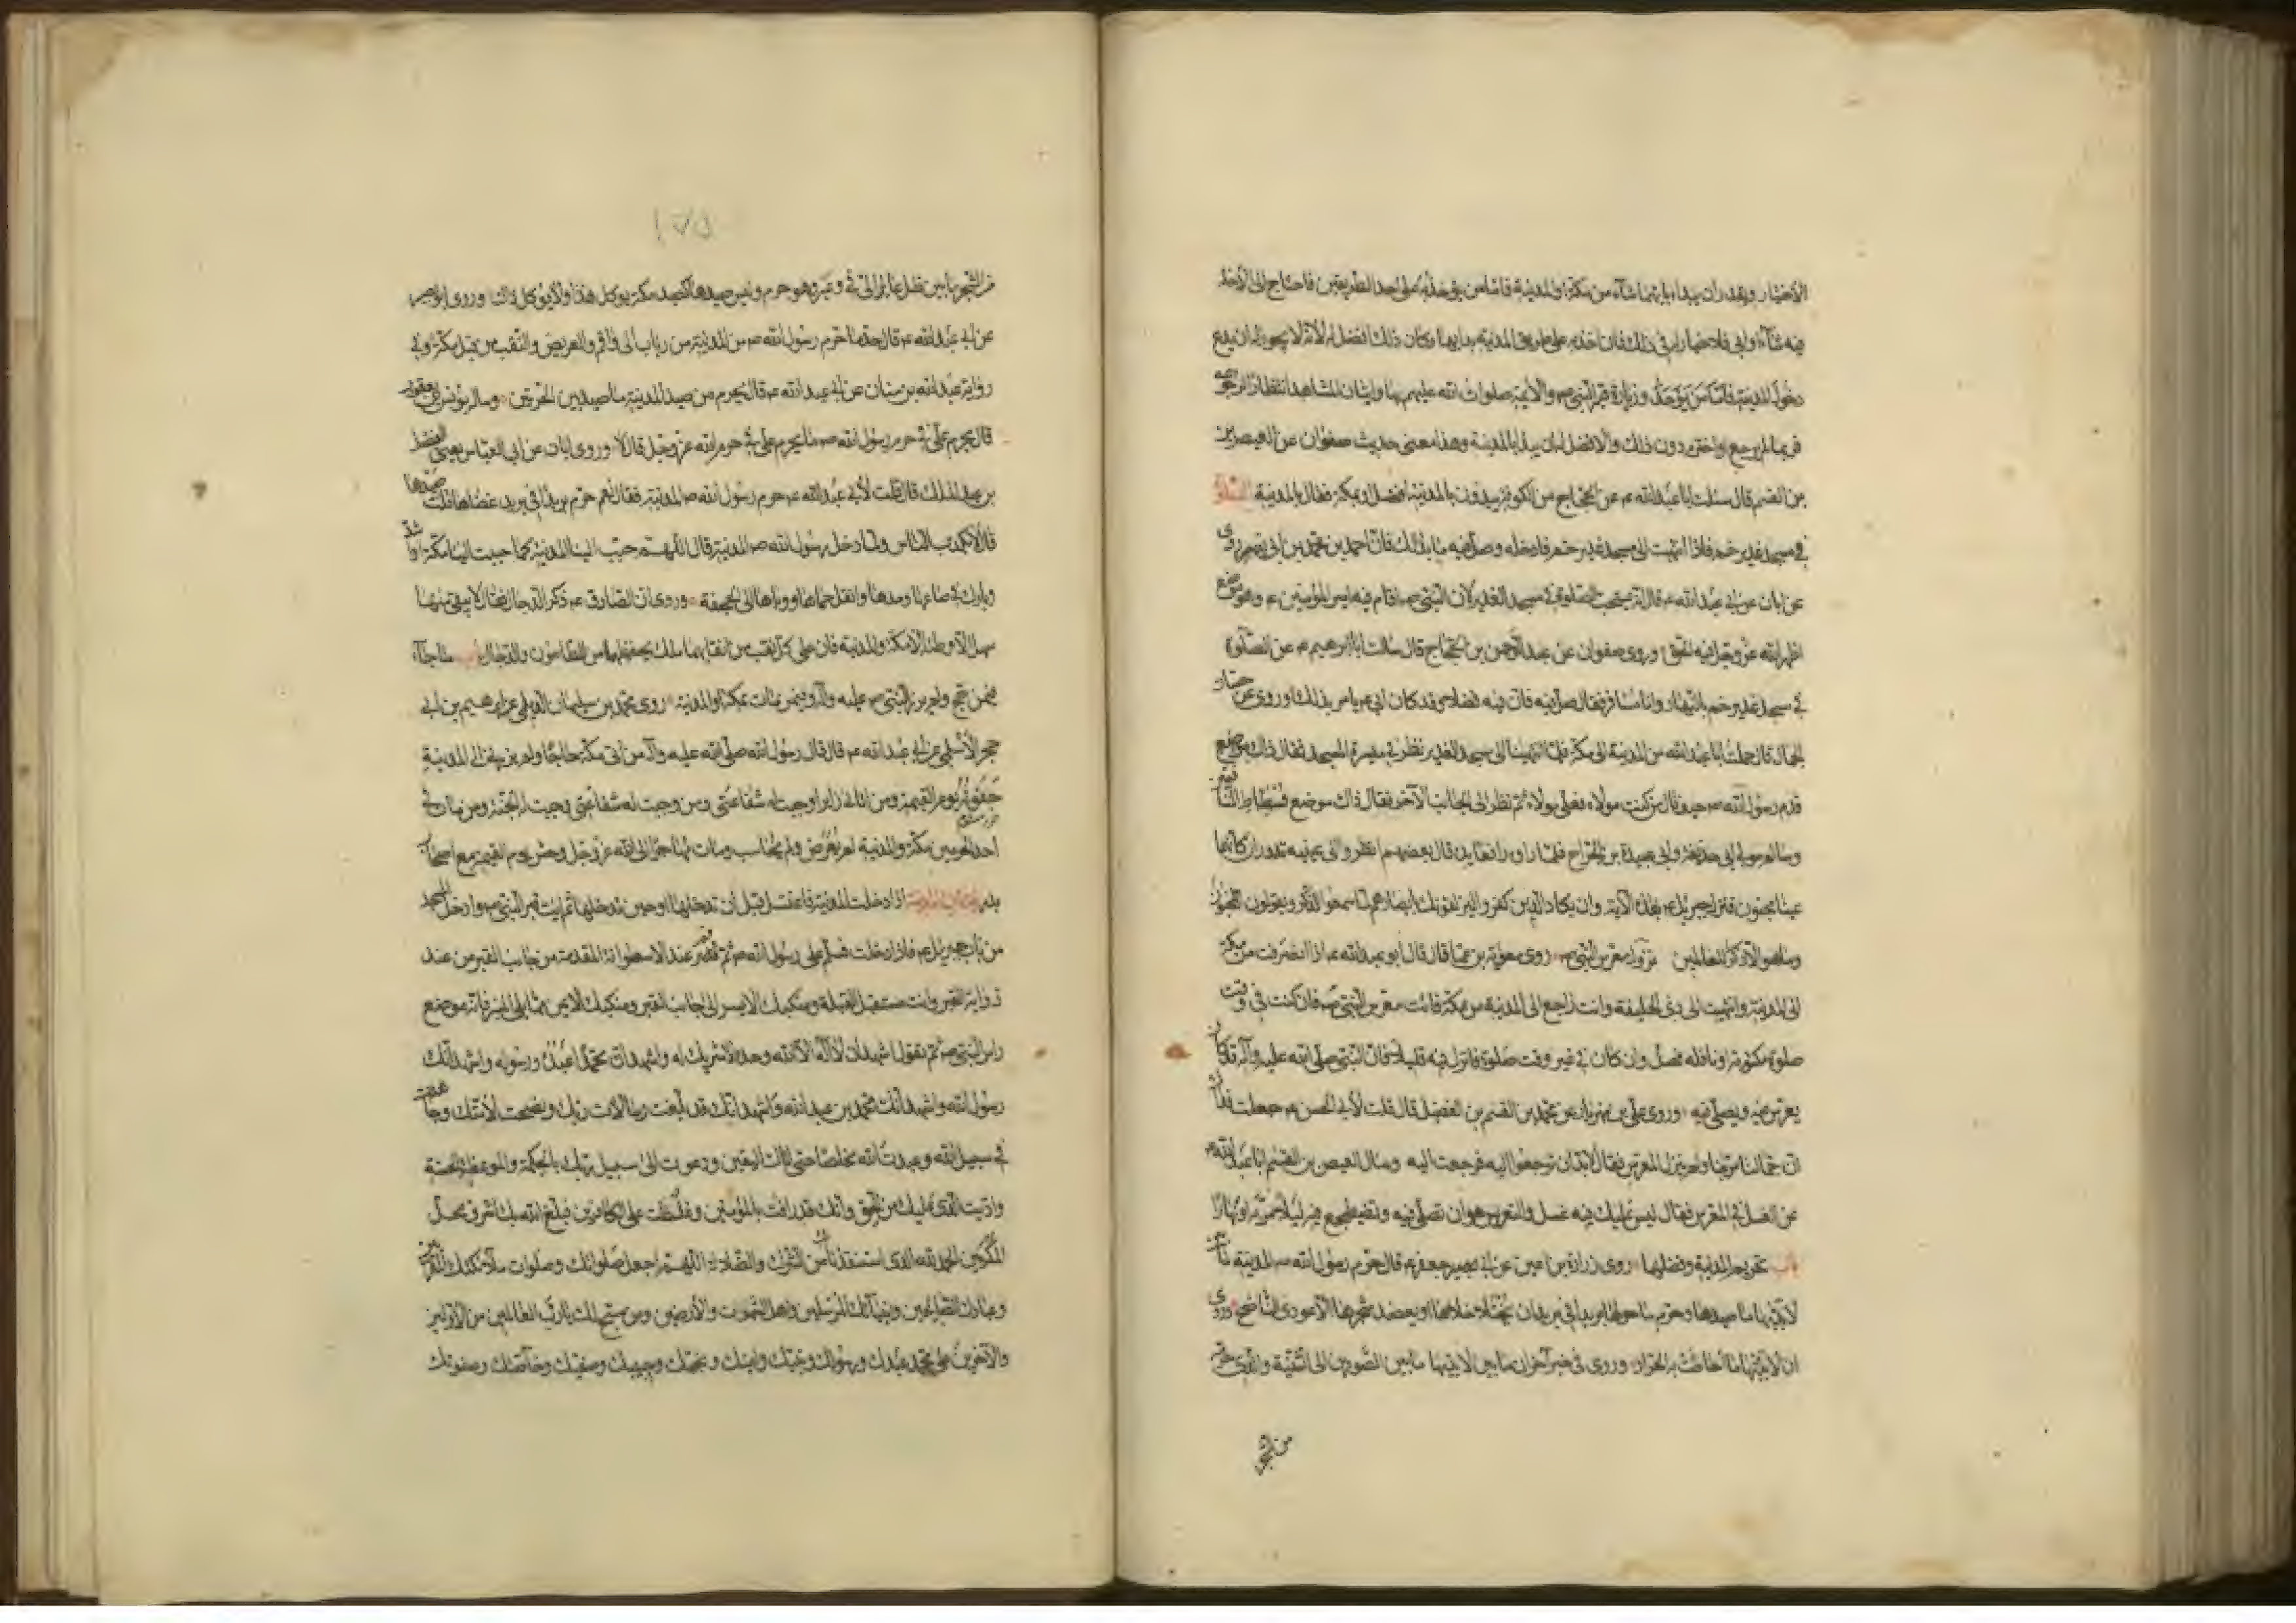 الاختيار ويقدر ان يبدا بايهما شآء من مكة او المدينة فاما من يؤخذ به على احد الطريقين فاحتاج الى الاخذ
فيه شآء او ابى فلا خيار له فى ذلك فان اخذ به على طريق المدينة بدا بها وكان ذلك افضل له لانه لا يجوز له ان يدع
دخول المدينة وزيارة قبر النبى ص والائمة صلوات الله عليهم بها واتيان المشاهد انتظارا للرجوع
فربما لم يرجع او اخترم دون ذلك والافضل له ان يبدا بالمدينة وهذا معنى حديث صفوان عن العيص بن
بن القسم قال سئلت ابا عبد الله ع عن الحجاج من الكوفة يبدؤن بالمدينة افضل او بمكة فقال بالمدينة الصلوة
فى مسجد غدير خم فاذا انتهيت الى مسجد غدير خم فادخله وصل فيه ما بدا لك فان احمد بن محمد بن ابى نصر روى
عن ابان عن ابى عبد الله ع قال انه يستحب الصلوة فى مسجد الغدير لان النبى ص اقام فيه امير المؤمنين ع وهو موضع
اظهر الله عز وجل فيه الحق وروى صفوان عن عبد الرحمن بن الحجاج قال سالت ابا ابرهيم ع عن الصلوة
فى مسجد غدير خم بالنهار وانا مسافر فقال صل فيه فان فيه فضلا وقد كان ابى ع يامر بذلك وروى عن حسان
الجمال قال حملت ابا عبد الله من المدينة الى مكة فلما انتهينا الى مسجد الغدير نظر فى ميسرة المسجد فقال ذاك موضع
قدم رسول الله ص حيث قال من كنت مولاه فعلى مولاه ثم نظر الى الجانب الآخر فقال ذاك موضع فسطاط
وسالم مولى ابى حذيفة وابى عبيدة بن الجراح فلما راوه رافعا يده قال بعضهم انظروا الى عينيه تدوران كانهما
عينا مجنون فنزل جبرئيل ع بهذه الآية وان يكاد الذين كفروا ليزلقونك بابصارهم لما سمعوا الذكر ويقولون انه لمجنون
وما هو الا ذكر للعالمين نزول معرس النبى ص روى معوية بن عمار قال قال ابو عبد الله ع اذا انصرفت من مكة
الى المدينة وانتهيت الى ذى الحليفة وانت راجع الى المدينة من مكة فائت معرس النبى ص فان كنت فى وقت
صلوة مكتوبة او نافلة فصل وان كان فى غير وقت صلوة فانزل فيه قليلا فان النبى صلى الله عليه وآله قد كان
يعرس فيه ويصلى فيه وروى على بن مهزيار عن محمد بن القسم بن الفضيل قال قلت لابى الحسن ع جعلت فداك
ان جمالنا مر بنا ولم ينزل المعرس فقال لابد ان ترجعوا اليه فرجعت اليه وسال العيص بن القسم ابا عبد الله ع
عن الغسل فى المعرس فقال ليس عليك فيه غسل والتعريس هو ان تصلى فيه وتضطجع فيه ليلا مر به او نهارا
باب تحريم المدينة وفضلها روى زرارة بن اعين عن ابى جعفر ع قال حرم رسول الله ص المدينة ما بين
لابتيها صيدها وحرم ما حولها بريدا فى بريد ان يختلا خلاها او يعضد شجرها الا عودى الناضح وروى
ان لابتيها ما احاطت به الحرار وروى فى خبر آخر ان ما بين لابتيها ما بين الصورين الى الثنية والذى حرمه
من الشجر
١٧٥
من الشجر ما بين ظل عاير الى فىء وعير وهو حرم وليس صيدها كصيد مكة يؤكل هذا ولا يؤكل ذاك وروى ابو بصير
عن ابى عبد الله ع قال حد ما حرم رسول الله ص من المدينة من ذباب الى واقم والعريض والنقب من قبل مكة وفى
رواية عبد الله بن سنان عن ابى عبد الله ع قال يحرم من صيد المدينة ما صيد بين الحرتين وساله يونس بن يعقوب
قال يحرم على فى حرم رسول الله ص ما يحرم على فى حرم الله عز وجل قال لا وروى ابان عن ابى العباس يعنى الفضل
بن عبد الملك قال قلت لابى عبد الله ع حرم رسول الله ص المدينة فقال نعم حرم بريدا فى بريد عضاها قلت صيدها
قال لا يكذب الناس ولما دخل رسول الله ص المدينة قال اللهم حبب الينا المدينة كما حببت الينا مكة او اشد
وبارك فى صاعها ومدها وانقل حماها ووباها الى الجحفة وروى ان الصادق ع ذكر الدجال فقال لا يبقى منها
سهل الا وطئه الا مكة والمدينة فان على كل نقب من انقابهما ملك يحفظهما من الطاعون والدجال باب ما جآء
فيمن حج ولم يزر النبى ص عليه وآله وفيمن مات بمكة او المدينة روى محمد بن سليمان الديلمى عن ابرهيم بن ابى
حجر الاسلمى عن ابى عبد الله ع قال قال رسول الله صلى الله عليه وآله من اتى مكة حاجا ولم يزرنى الى المدينة
جفوته يوم القيمة ومن اتانى زايرا وجبت له شفاعتى ومن وجبت له شفاعتى وجبت له الجنة ومن مات فى
احد الحرمين مكة والمدينة لم يعرض ولم يحاسب ومات مهاجرا الى الله عز وجل وحشر يوم القيمة مع اصحاب
بدر اتيان المدينة اذا دخلت المدينة فاغتسل قبل ان تدخلها او حين تدخلها ثم ايت قبر النبى ص وادخل المسجد
من باب جبرئيل ع فاذا دخلت فسلم على رسول الله ص ثم قم عند الاسطوانة المقدمة من جانب القبر من عند
زواية القبر وانت مستقبل القبلة ومنكبك الايسر الى جانب القبر ومنكبك الايمن مما يلى المنبر فانه موضع
راس النبى ص ثم تقول اشهد ان لا اله الا الله وحده لا شريك له واشهد ان محمدا عبده ورسوله واشهد انك
رسول الله واشهد انك محمد بن عبد الله واشهد انك قد بلغت رسالات ربك ونصحت لامتك وجاهدت
فى سبيل الله وعبدت الله مخلصا حتى اتاك اليقين ودعوت الى سبيل ربك بالحكمة والموعظة الحسنة
واديت الذى عليك من الحق وانك قد رافت بالمؤمنين وغلظت على الكافرين فبلغ الله بك اشرف محل
المكرمين الحمد لله الذى استنقذنا بك من الشرك والضلالة اللهم اجعل صلواتك وصلوات ملآئكتك المقربين
وعبادك الصالحين وانبيآئك المرسلين واهل السموت والارضين ومن سبح لك يا رب العالمين من الاولين
والآخرين على محمد عبدك ورسولك ونبيك وامينك ونجيك وحبيبك وصفيك وخاصتك وصفوتك